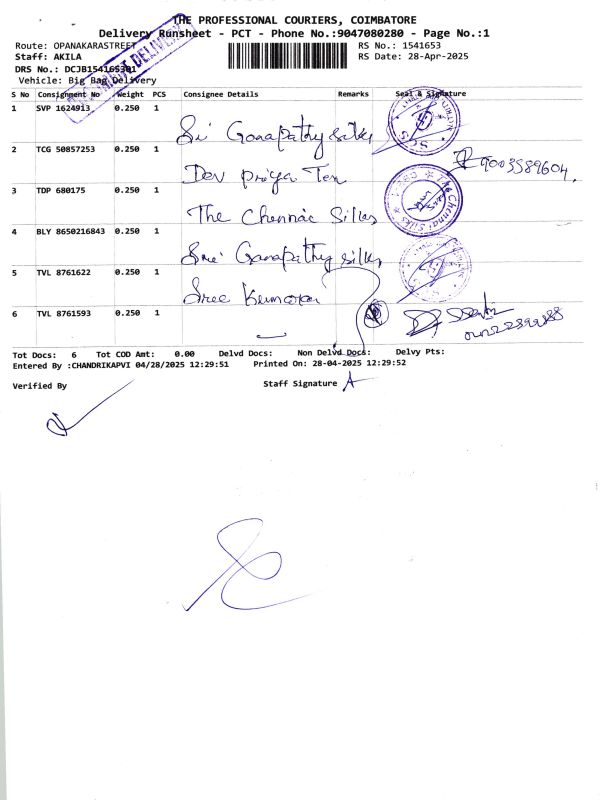 THE PROFESSIONAL COURIERS, COIMBATORE
Delivery Runsheet - PCT - Phone No.:9047080280 - Page No.:1
Route: OPANAKARASTREET
RS No.: 1541653
Staff: AKILA
RS Date: 28-Apr-2025
DRS No.: DCJB154165301
Vehicle: Big Bag Delivery
DELIVERY
S No Consignment No Weight PCS Consignee Details Remarks Seal & Signature
1 SVP 1624913 0.250 1
Sri Ganapathy silks
SCS
2 TCG 50857253 0.250 1
Dev priya Tex
9003589604.
3 TDP 680175 0.250 1
The Chennai Silks
The Chennai Silks
4 BLY 8650216843 0.250 1
Sri Ganapathy silks
5 TVL 8761622 0.250 1
Sree Kumaran
6 TVL 8761593 0.250 1
Tot Docs: 6 Tot COD Amt: 0.00 Delvd Docs: Non Delvd Docs: Delvy Pts:
Entered By :CHANDRIKAPVI 04/28/2025 12:29:51 Printed On: 28-04-2025 12:29:52
Verified By
Staff Signature A